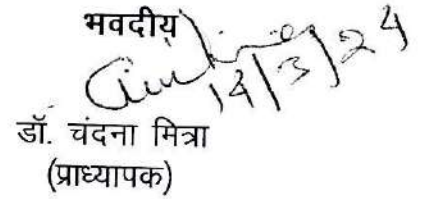 भवदीय
14/3/24
डॉ. चंदना मित्रा
(प्राध्यापक)